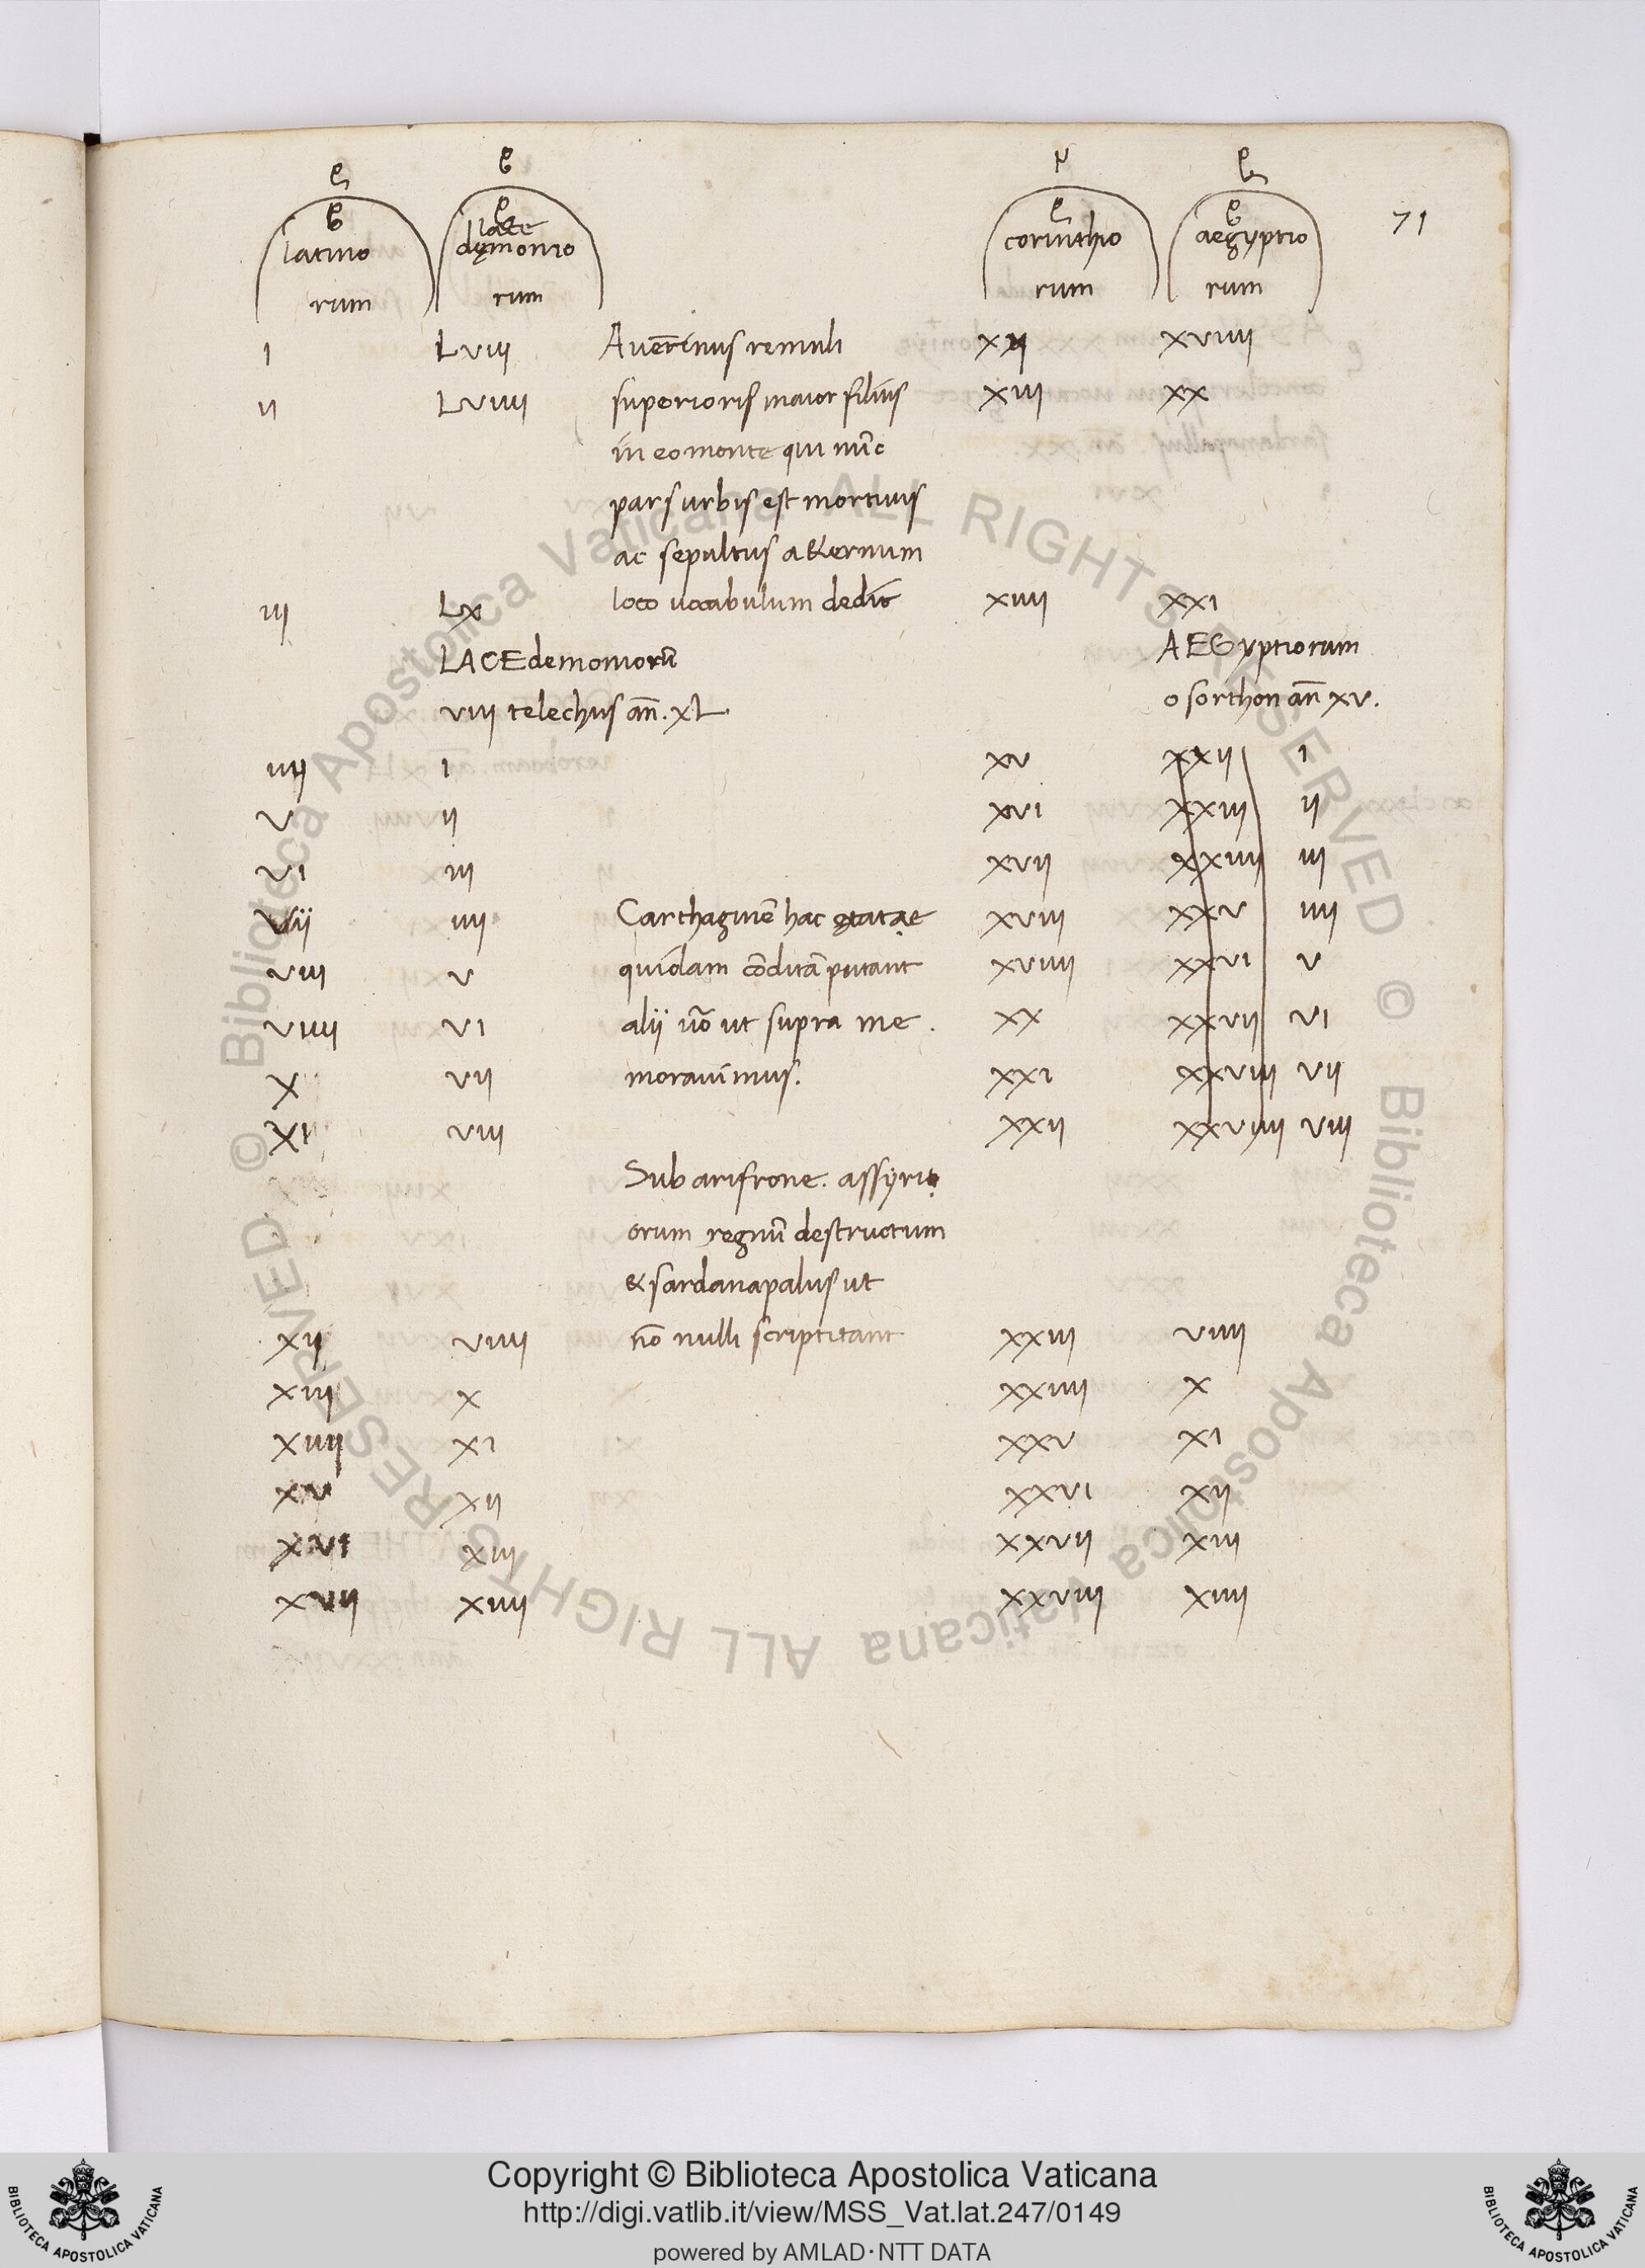 71
latino rum
lace demonio rum
corinthio rum
aegyptio rum
I LVIII Auentinus remuli XII XVIIII
II LVIIII superioris maior filius XIII XX
in eo monte qui nūc
pars urbis est mortuus
ac sepultus aeternum
III LX loco uocabulum dedit XIIII XXI
LACEdemoniorū AEGyptiorum
VIII telechus añ. XL. osorthon añ XV.
IIII I XV XXII I
V II XVI XXIII II
VI III XVII XXIIII III
VII IIII Carthaginē hac ętatae XVIII XXV IIII
VIII V quidam cōditā putant XVIIII XXVI V
VIIII VI alij ūo ut supra me XX XXVII VI
X VII morauimus. XXI XXVIII VII
XI VIII XXII XXVIIII VIII
Sub arifrone. assyri
orum regnū destructum
& sardanapalus ut
XII VIIII nō nulli scriptitant XXIII VIIII
XIII X XXIIII X
XIIII XI XXV XI
XV XII XXVI XII
XVI XIII XXVII XIII
XVII XIIII XXVIII XIIII
© Biblioteca Apostolica Vaticana ALL RIGHTS RESERVED
© Biblioteca Apostolica Vaticana ALL RIGHTS RESERVED
Copyright © Biblioteca Apostolica Vaticana
http://digi.vatlib.it/view/MSS_Vat.lat.247/0149
powered by AMLAD·NTT DATA
BIBLIOTECA APOSTOLICA VATICANA
BIBLIOTECA APOSTOLICA VATICANA